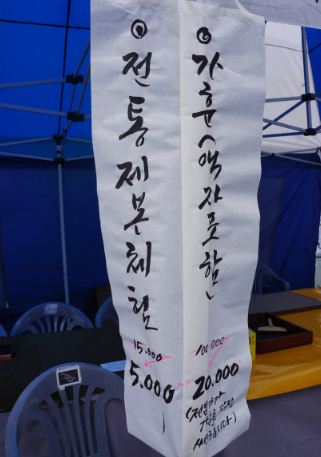 ◎전통제본체험
15,000
5,000
◎가훈(액자포함)
100,000
20,000
(전문가가